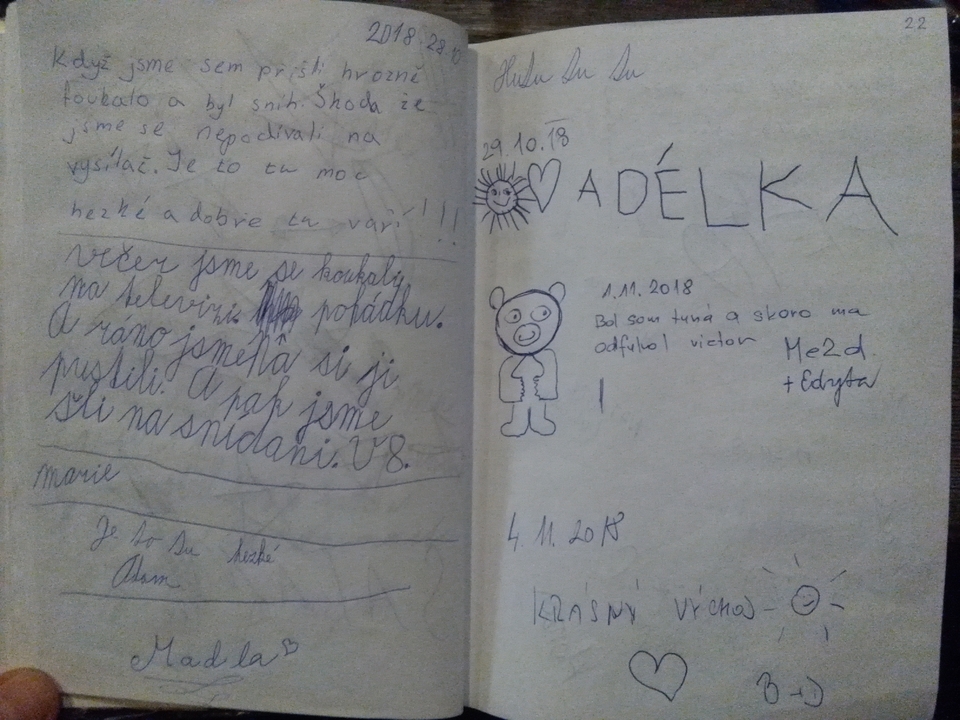 2018 28.10
Když jsme sem přišli hrozně
foukalo a byl snih. Škoda že
jsme se nepodivali na
vysílač. Je to tu moc
hezké a dobře tu vaří!!!
Večer jsme se koukaly
na televizi pohádku.
A ráno jsme si ji
pustili. A pap jsme
šli na snídani. V 8.
marie
Je to tu hezké
Adam
Madla
22
29.10.18
ADÉLKA
1.11.2018
Bol som tuná a skoro ma
odfukol vietor
+ Edyta
4.11.2018
KRÁSNÝ VÝCHOD
B+D